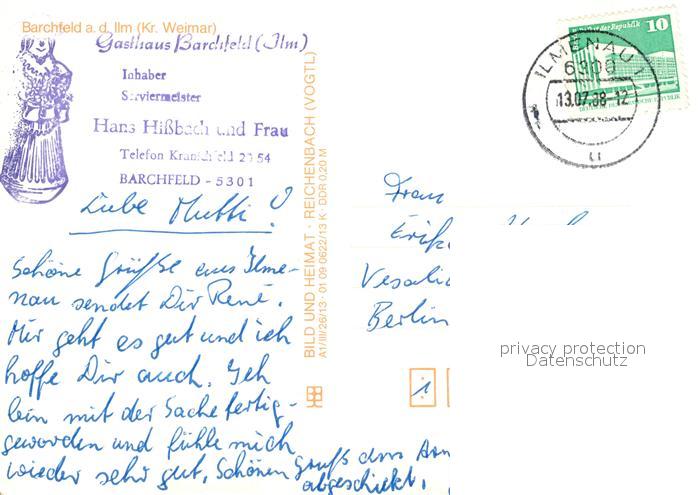 Barchfeld a. d. Ilm (Kr. Weimar)
Gasthaus Barchfeld (Ilm)
Inhaber
Serviermeister
Hans Hißbach und Frau
Telefon Kranichfeld
BARCHFELD - 5301
Liebe Mutti!
Schöne Grüße aus Ilme-
nau sendet Dir René.
Mir geht es gut und ich
hoffe Dir auch. Ich
bin mit der Sache fertig-
geworden und fühle mich
wieder sehr gut. Schönen Gruß
abgeschickt.
BILD UND HEIMAT · REICHENBACH (VOGTL)
A1/III/26/13 · 01 09 0622/13 K · DDR 0,20 M
10
ILMENAU 1
6300
13.07.88-12
u
Frau
Berlin
1
privacy protection
Datenschutz